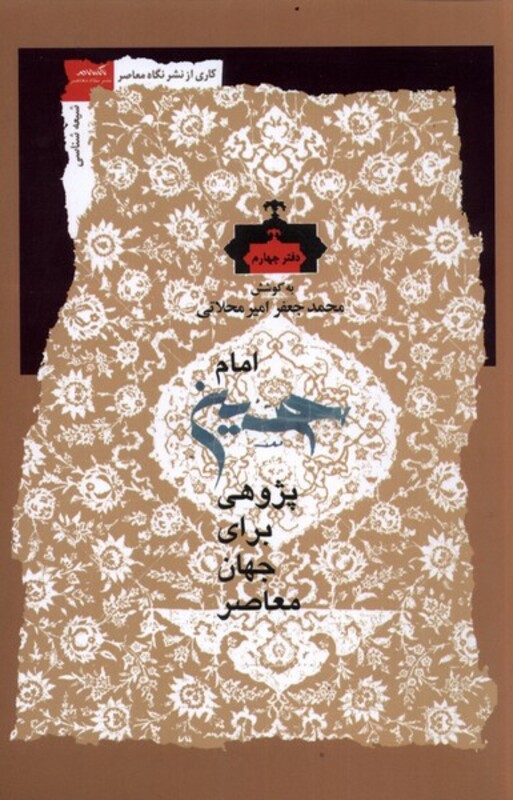 کاری از نشر نگاه معاصر
شیعه شناسی
دفتر چهارم
به کوشش
محمد جعفر امیر محلاتی
امام
حسین
پژوهی
برای
جهان
معاصر